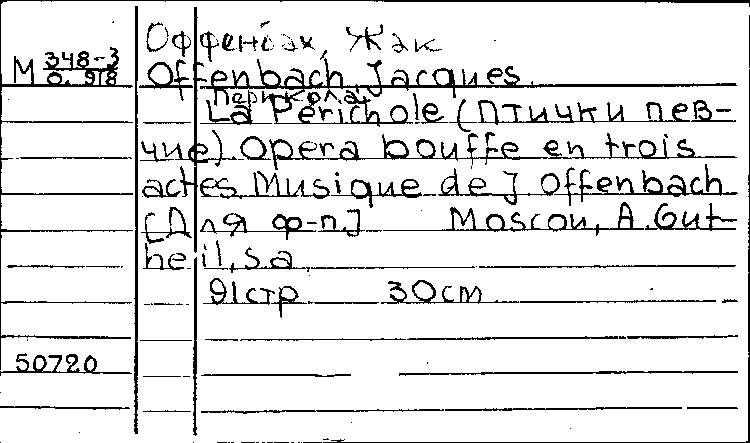 Оффенбах, Жак
М 348-3
О. 918
Offenbach, Jacques.
Перикола.
La Périchole (птички пев-
чие). Opera bouffe en trois
actes. Musique de J. Offenbach
[Для ф-п.] Moscou, A. Gut-
heil, s.a.
91стр 30см
50720